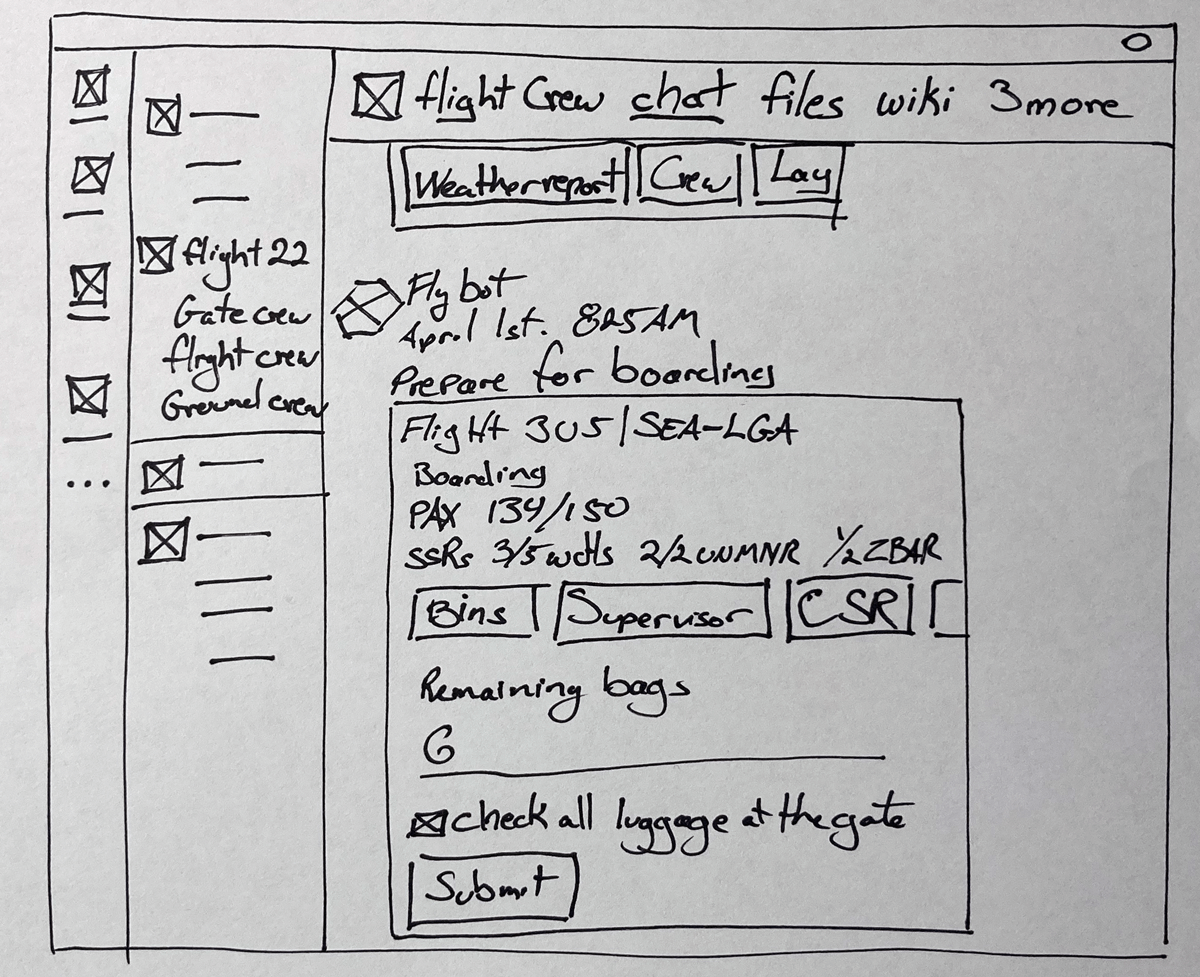 flight Crew chat files wiki 3 more
Weather report Crew Lay
flight 22
Gate crew
flight crew
Ground crew
Fly bot
April 1st. 825 AM
Prepare for boarding
Flight 305 | SEA-LGA
Boarding
PAX 134/150
SSRs 3/5 wchs 2/2 UNMNR 1/2 ZBAR
Bins Supervisor CSR
Remaining bags
6
check all luggage at the gate
Submit
...